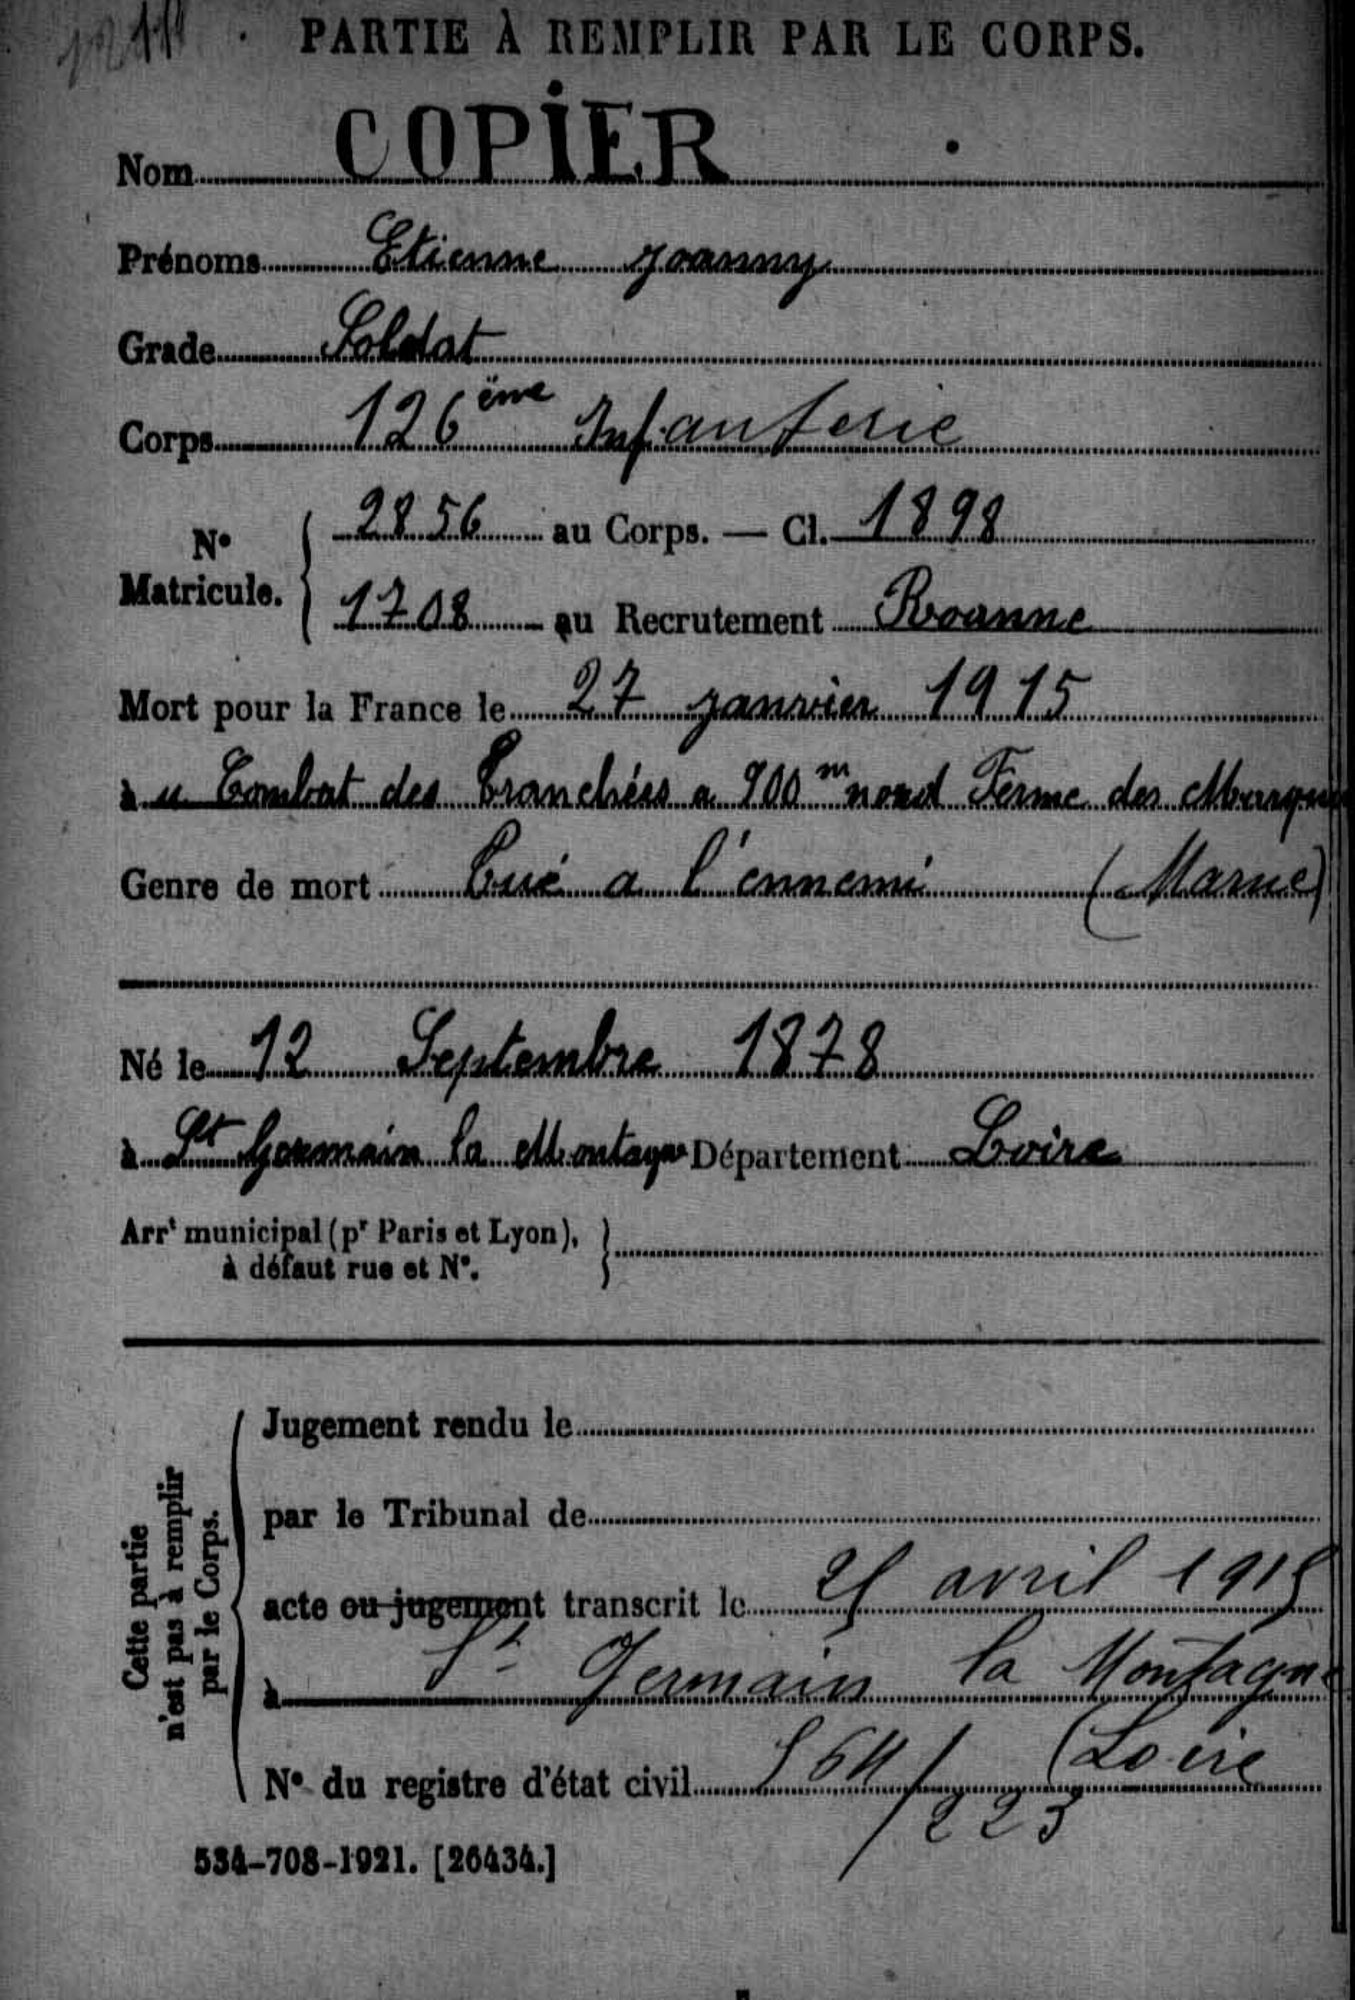 PARTIE À REMPLIR PAR LE CORPS.
Nom COPIER
Prénoms Etienne Joanny
Grade Soldat
Corps 126ème Infanterie
N° Matricule. { 2856 au Corps. — Cl. 1898
1708 au Recrutement Roanne
Mort pour la France le 27 janvier 1915
à u Combat des Tranchées a 900m nord Ferme des
Genre de mort Tué a l'ennemi (Marne)
Né le 12 Septembre 1878
à St Germain la Montagne Département Loire
Arrt municipal (pr Paris et Lyon),
à défaut rue et N°.
Cette partie
n'est pas à remplir
par le Corps.
Jugement rendu le
par le Tribunal de
acte ou jugement transcrit le avril 1915
à St Germain la Montagne
N° du registre d'état civil (Loire
/ 223
534-708-1921. [26434.]